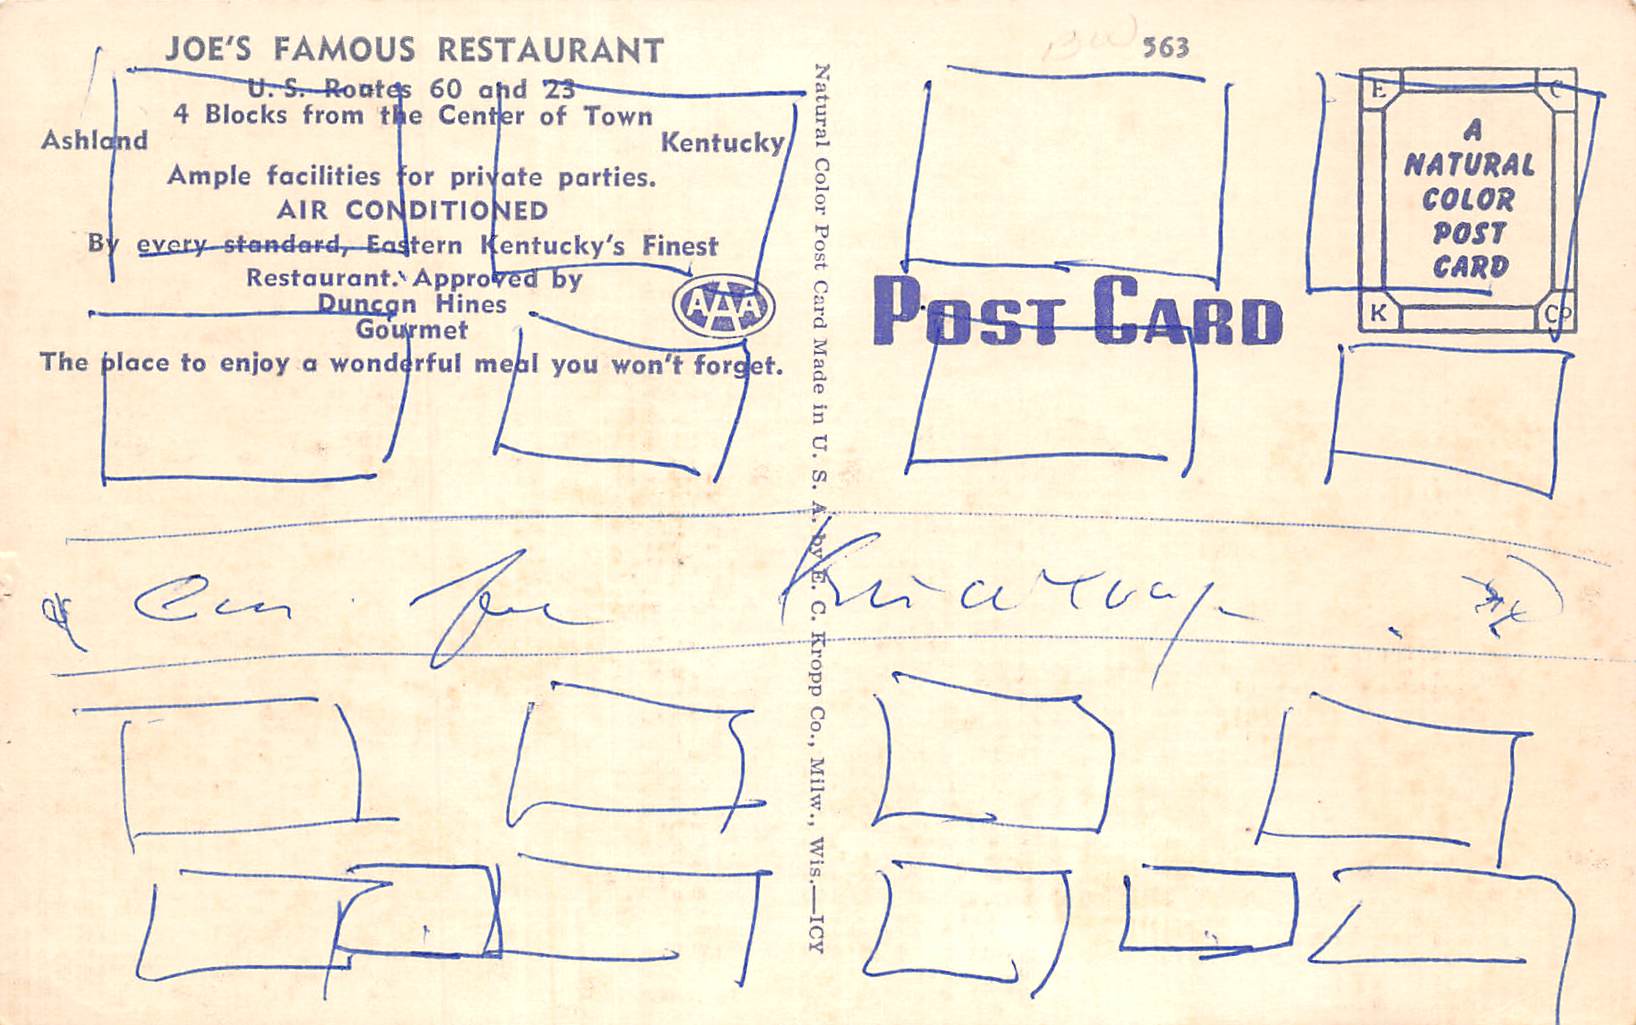 JOE'S FAMOUS RESTAURANT
U. S. Routes 60 and 23
4 Blocks from the Center of Town
Ashland Kentucky
Ample facilities for private parties.
AIR CONDITIONED
By every standard, Eastern Kentucky's Finest
Restaurant. Approved by
Duncan Hines
Gourmet
AAA
The place to enjoy a wonderful meal you won't forget.
Natural Color Post Card Made in U. S. A. by E. C. Kropp Co., Milw., Wis.—ICY
BW
563
POST CARD
E C
A
NATURAL
COLOR
POST
CARD
K Co